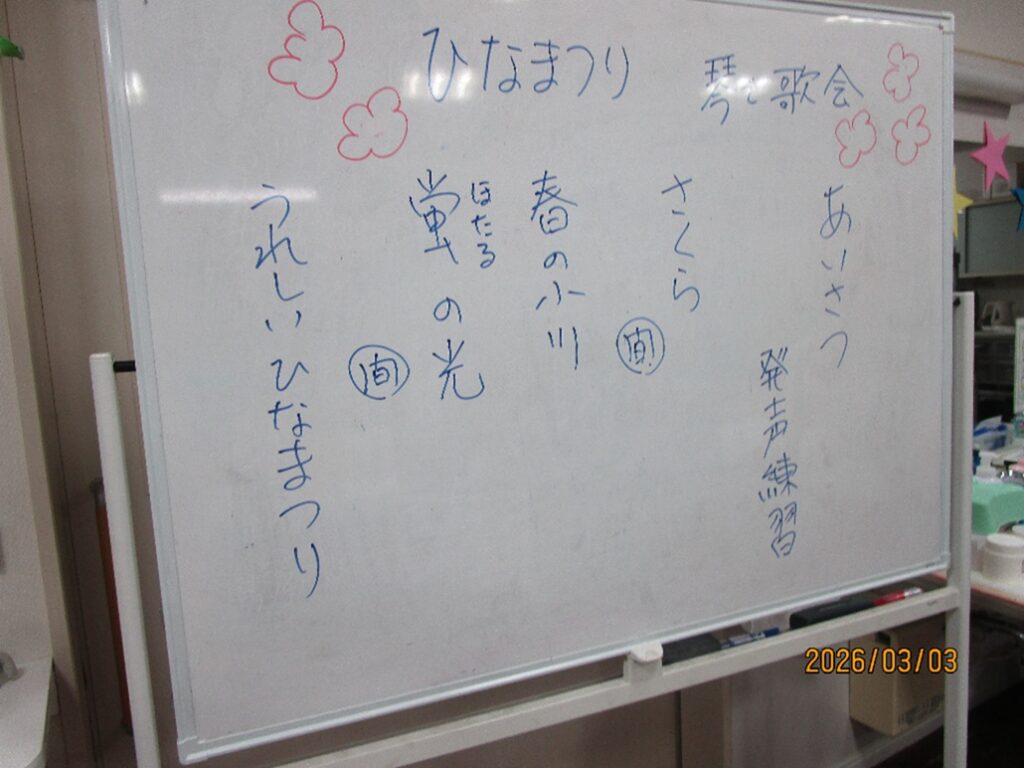 ひなまつり
琴と歌会
あいさつ
発声練習
さくら
春の小川
ほたる
蛍の光
うれしいひなまつり
2026/03/03